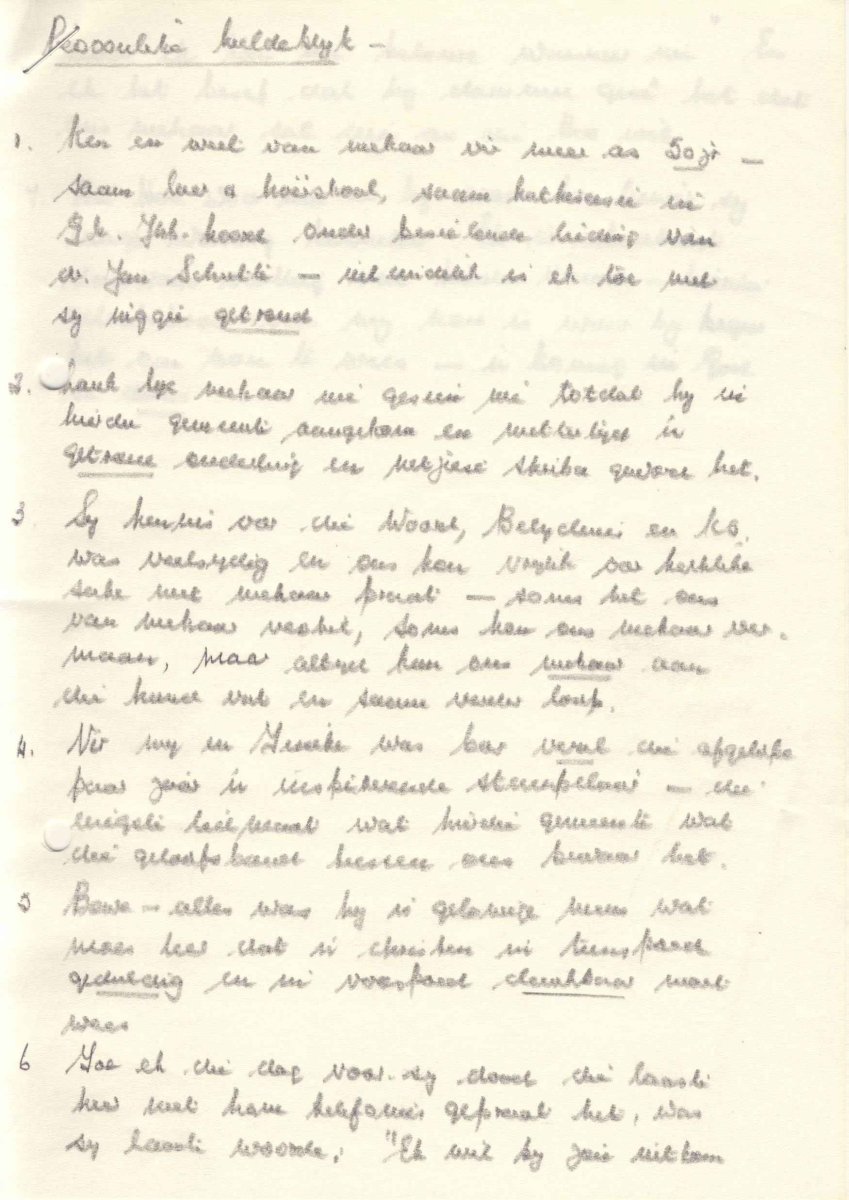 Persoonlike huldeblyk -
1. Ken en weet van mekaar vir meer as 50 jr -
saam leer a hoërskool, saam katkisasie in
Gk. Jhb. Noord onder besielende leiding van
ds. Jan Schutte - uiteindelik is ek toe met
sy niggie getroud
2. Lank tye mekaar nie gesien nie totdat hy in
hierdie gemeente aangekom en mettertyd 'n
getroue ouderling en netjiese skriba geword het.
3 Sy kennis van die Woord, Belydenis en KO.
was veelsydig en ons kon vrylik oor kerklike
sake met mekaar praat - soms het ons
van mekaar verskil, soms kon ons mekaar ver-
maan, maar altyd kon ons mekaar aan
die hand vat en saam verder loop.
4. Vir my en was hy veral die afgelope
paar jaar 'n inspirerende steunpilaar - die
enigste lidmaat wat hierdie gemeente wat
die geloofsband tussen ons bewaar het.
5 Bowe-alles was hy 'n gelowige mens wat
moes leer dat 'n christen in teenspoed
geduldig en in voorspoed dankbaar moet
wees
6 Toe ek die dag voor sy dood die laaste
keer met hom telefonies gepraat het, was
sy laaste woorde: "Ek wil by jou uitkom